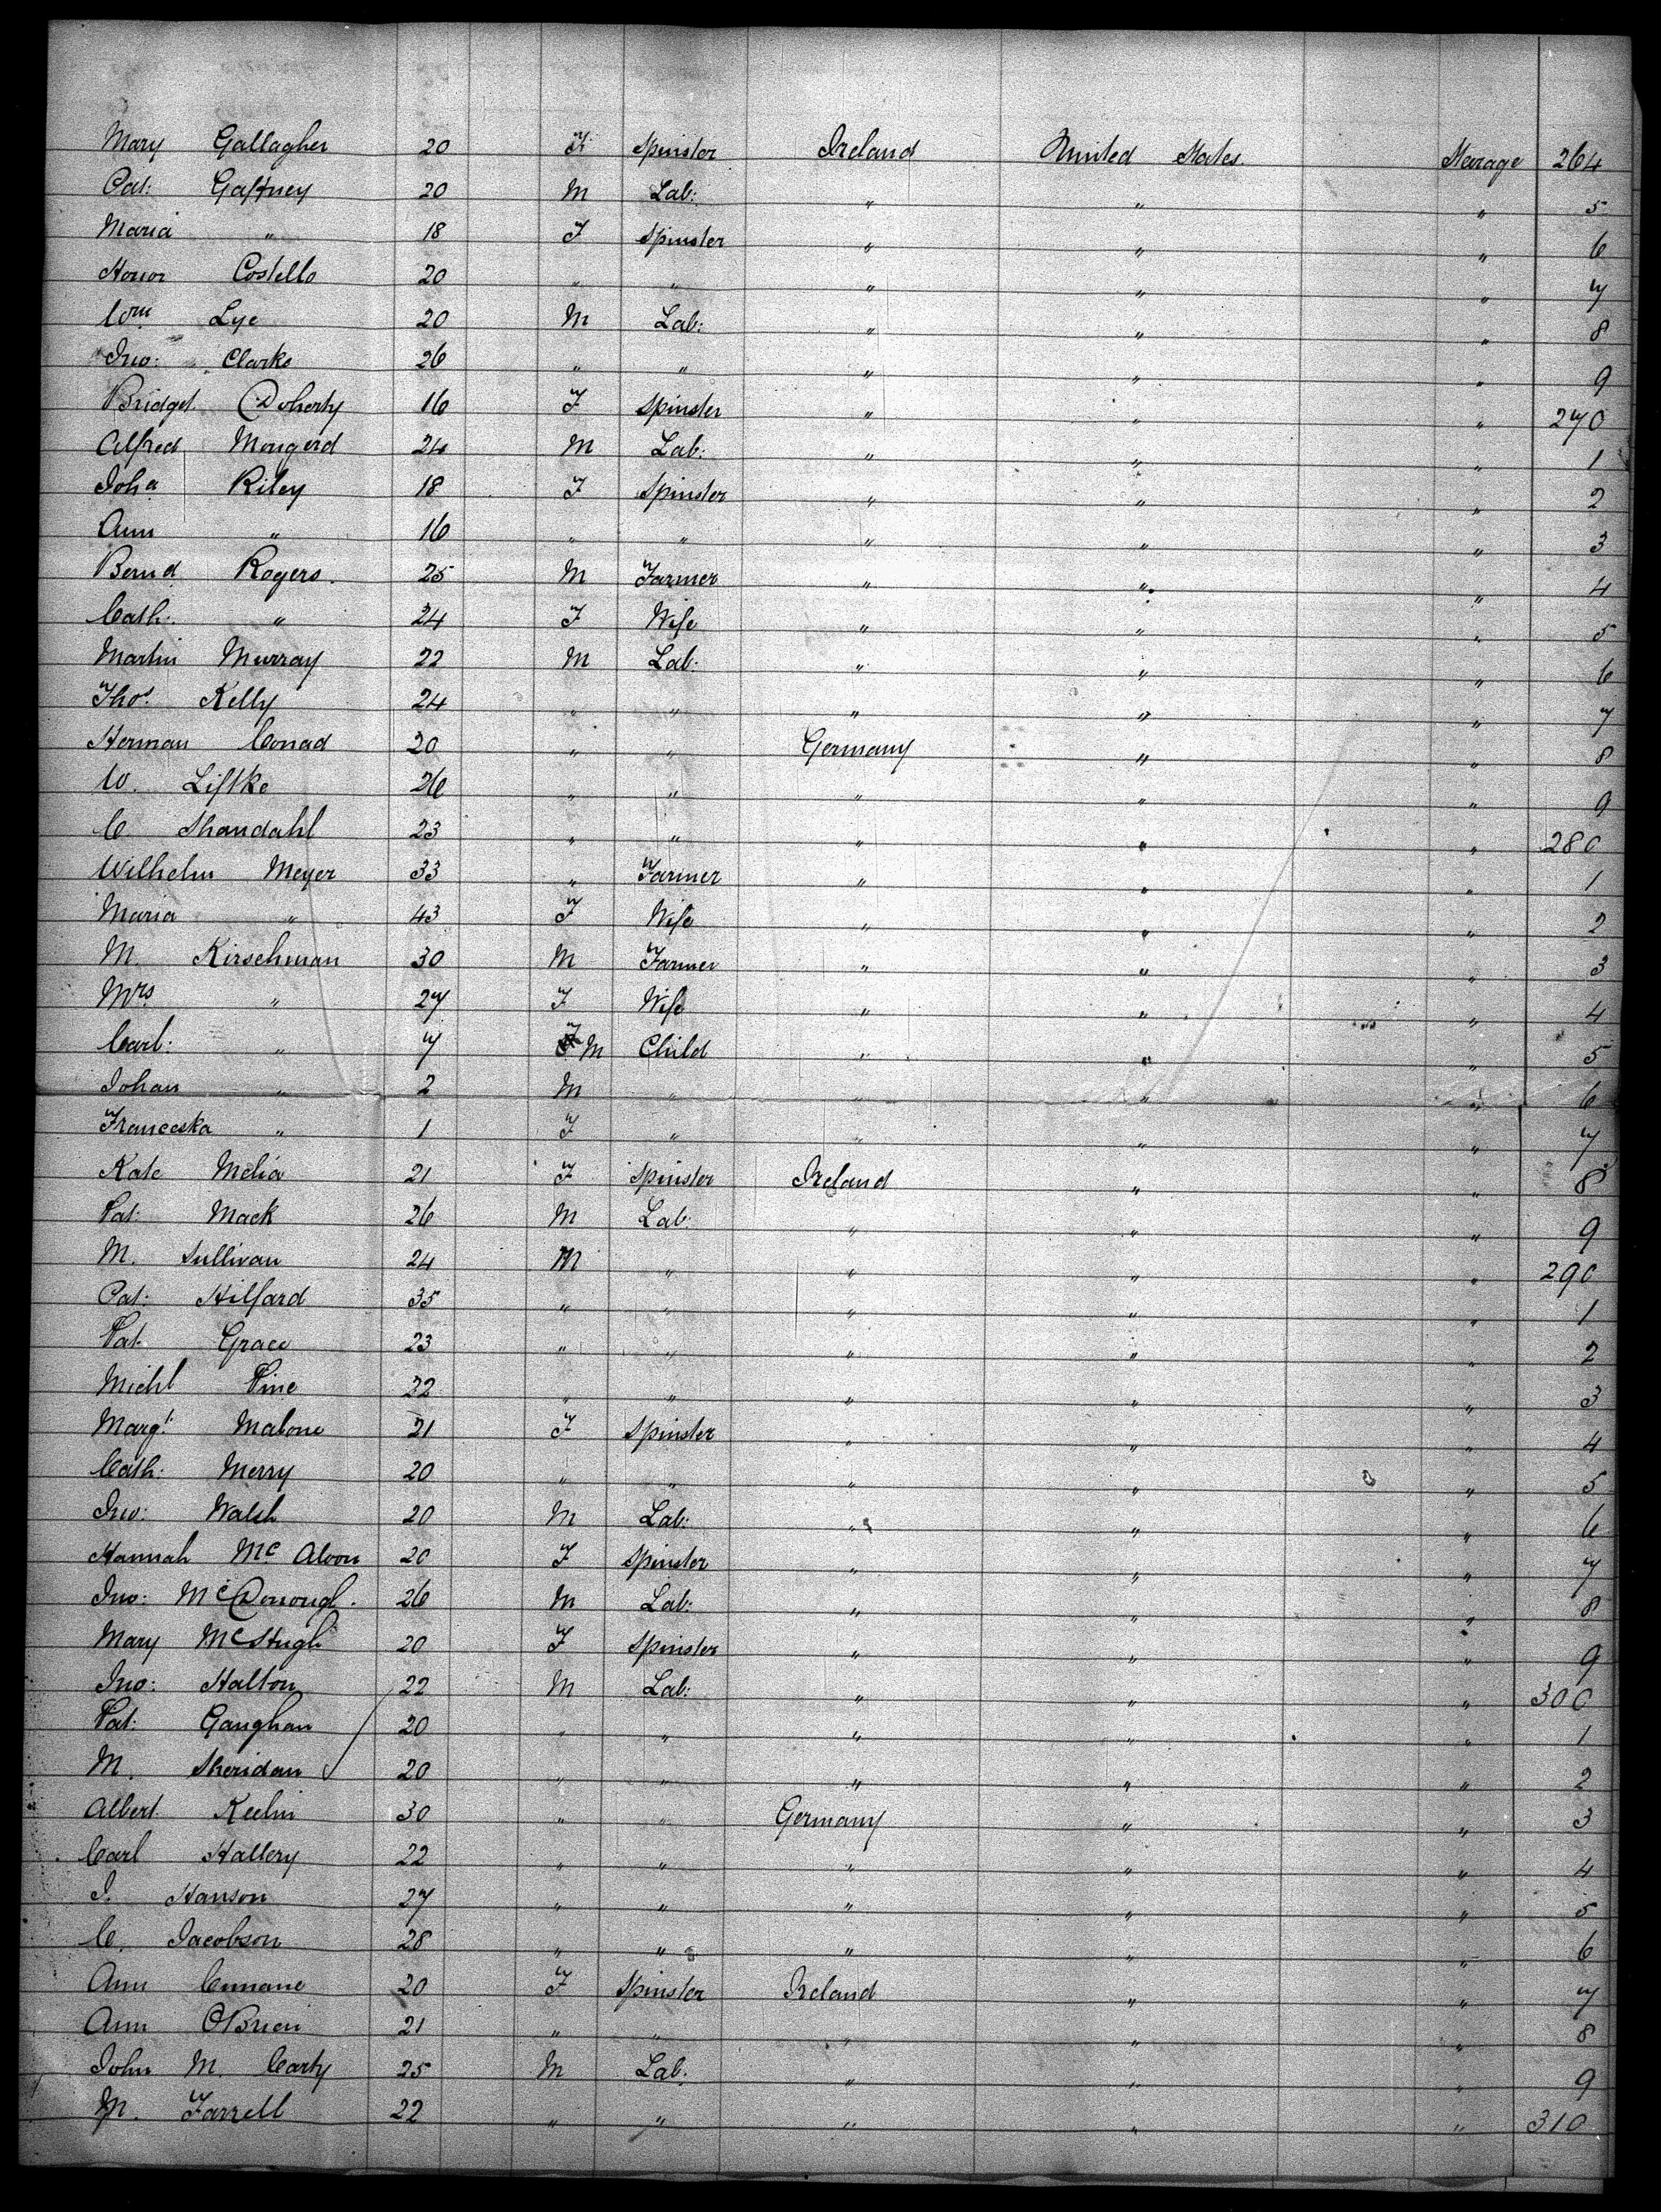 Mary Gallagher 20 F Spinster Ireland United States Steerage 264
Pat: Gaffney 20 M Lab: " " " 5
Maria " 18 F Spinster " " " 6
Honor Costello 20 " " " " " 7
Wm Lye 20 M Lab: " " " 8
Jno: Clarke 26 " " " " " 9
Bridget Doherty 16 F Spinster " " " 270
Alfred Mongerd 24 M Lab: " " " 1
Joha Riley 18 F Spinster " " " 2
Ann " 16 " " " " " 3
Bernd Rogers. 25 M Farmer " " " 4
Cath: " 24 F Wife " " " 5
Martin Murray 22 M Lab: " " " 6
Thos. Kelly 24 " " " " " 7
Herman Conrad 20 " " Germany " " 8
W. Liftke 26 " " " " " 9
C. Shandahl 23 " " " " " 280
Wilhelm Meyer 33 " Farmer " " " 1
Maria " 43 F Wife " " " 2
M. Kirschman 30 M Farmer " " " 3
Mrs " 27 F Wife " " " 4
Carl: " 7 M Child " " " 5
Johan " 2 M " " " " 6
Franceska " 1 F " " " " 7
Kate Melia 21 F Spinster Ireland " " 8
Pat: Mack 26 M Lab: " " " 9
M. Sullivan 24 M " " " " 290
Pat: Hilfard 35 " " " " " 1
Pat. Grace 23 " " " " " 2
Michl Pine 22 " " " " " 3
Margt: Malone 21 F Spinster " " " 4
Cath: Merry 20 " " " " " 5
Jno: Walsh 20 M Lab: " " " 6
Hannah Mc 20 F Spinster " " " 7
Jno: McDonough. 26 M Lab: " " " 8
Mary McHugh 20 F Spinster " " " 9
Jno: Halton 22 M Lab: " " " 300
Pat: Gaughan 20 " " " " " 1
M. Sheridan 20 " " " " " 2
Albert Keelin 30 " " Germany " " 3
Carl Hallery 22 " " " " " 4
J. Hanson 27 " " " " " 5
C. Jacobson 28 " " " " " 6
Ann Cunnane 20 F Spinster Ireland " " 7
Ann O'Brien 21 " " " " " 8
John M. Carty 25 M Lab: " " " 9
M. Farrell 22 " " " " " 310